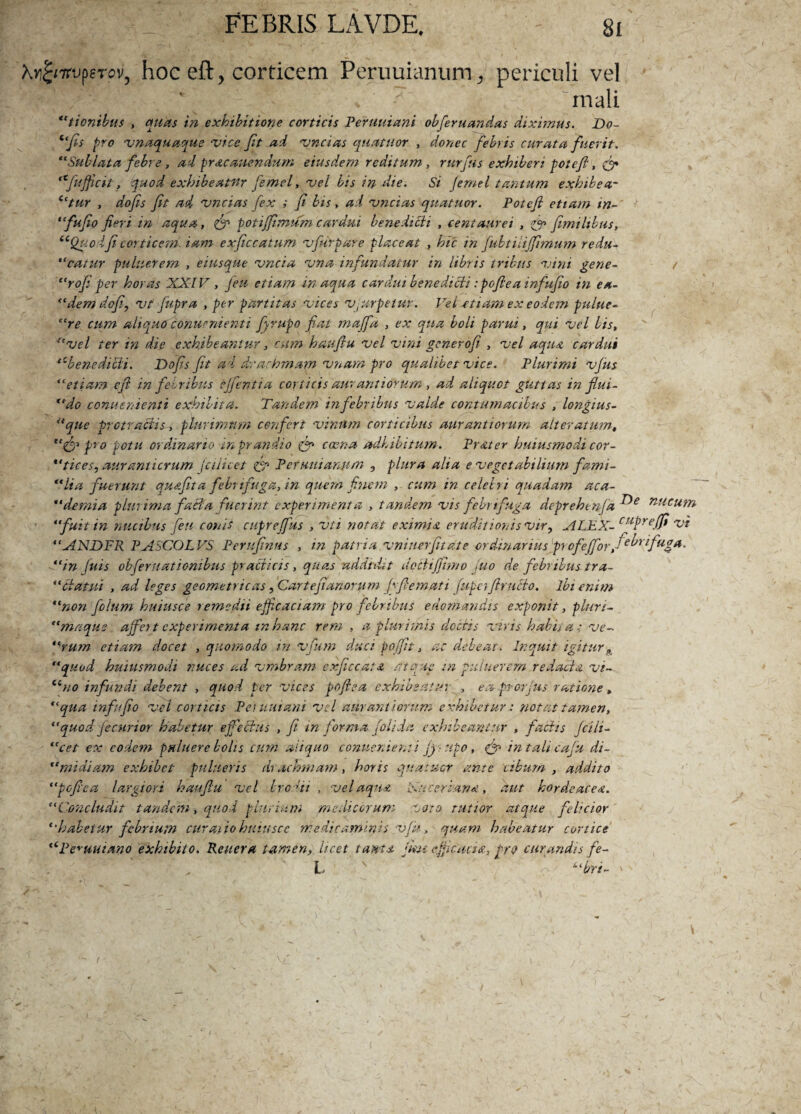 FEBRIS LAVDE. 81
ληξιπυρετον, hoc eſt, corticem Peruuianum, periculi vel
mali
“tionibus , quas in exhibitione corticis Peruuiani obſeruandas diximus. Do-
“ſis pro vnaquaque vice ſit ad vncias quatuor , donec febris curata fuerit.
“Sublata febre , ad præcauendum eiusdem reditum , rurſus exhiberi poteſt , &
“ſufficit , quod exhibeatur ſemel, vel bis in die. Si ſemel tantum exhibea-
“tur , doſis ſit ad vncias ſex ; ſi bis , ad vncias quatuor. Poteſt etiam in-
“fuſio fieri in aqua, & potiſſimùm cardui benedicti , centaurei , & ſimilibus,
“Quodſi corticem iam exſiccatum vſurpare placeat , hic in ſubtiliſſimum redu-
“catur puluerem , eiusque vncia vna infundatur in libris tribus vini gene-
“roſi per horas XXIV , ſeu etiam in aqua cardui benedicti : poſtea infuſio in ea-
“dem doſi, vt ſupra , per partitas vices vſurpetur. Vel etiam ex eodem pulue-
“re cum aliquo conuenienti ſyrupo fiat maſſa , ex qua boli parui , qui vel bis,
“vel ter in die exhibeantur , cum hauſtu vel vini generoſi , vel aquæ cardui
“benedicti. Doſis ſit ad drachmam vnam pro qualibet vice. Plurimi vſus
“etiam eſt in febribus eſſentia corticis aurantiorum , ad aliquot guttas in flui-
“do conuenienti exhibita. Tandem in febribus valde contumacibus , longius-
“que protractis , plurimum confert vinum corticibus aurantiorum alteratum,
“& pro potu ordinario in prandio & cœna adhibitum. Præter huiusmodi cor-
“tices, aurantiorum ſcilicet & Peruuianum , plura alia e vegetabilium fami-
“lia fuerunt quæſita febrifuga, in quem finem , cum in celebri quadam aca-
“demia plurima facta fuerint experimenta , tandem vis febrifuga deprehenſa
De nucum
“fuit in nucibus ſeu conis cupreſſus , vti notat eximiæ eruditionis vir, ALEX-
cupreſſi vi
“ANDER PASCOLVS Peruſinus , in patria vniuerſitate ordinarius profeſſor,
febrifuga.
“in ſuis obſeruationibus practicis , quas addidit doctiſſimo ſuo de febribus tra-
“ctatui , ad leges geometricas , Carteſianorum ſyſtemati ſuperſtructo. Ibi enim
“non ſolum huiusce remedii efficaciam pro febribus edomandis exponit, pluri-
“maque affert experimenta in hanc rem , a plurimis doctis viris habita : ve-
“rum etiam docet , quomodo in vſum duci poſſit, ac debeat. Inquit igitur,
“quod huiusmodi nuces ad vmbram exſiccatæ atque in puluerem redactæ vi-
“no infundi debent , quod per vices poſtea exhibeatur , ea prorſus ratione ,
“qua infuſio vel corticis Peruuiani vel aurantiorum exhibetur : notat tamen,
“quod ſecurior habetur effectus , ſi in forma ſolida exhibeantur , factis ſcili-
“cet ex eodem puluere bolis cum aliquo conuenienti ſyrupo, & in tali caſu di-
“midiam exhibet pulueris drachmam , horis quatuor ante cibum , addito
“poſtea largiori hauſtu vel brodii , vel aquæ Nucerianæ , aut hordeateæ.
“Concludit tandem , quod plurium medicorum voto tutior atque felicior
“habetur febrium curatio huiusce medicaminis vſu , quam habeatur cortice
“Peruuiano exhibito. Reuera tamen, licet tantæ ſint efficaciæ, pro curandis fe-
L “bri-